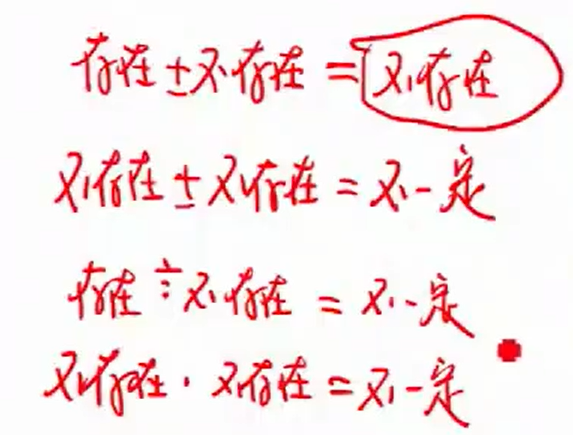 存在±不存在=不存在
不存在±不存在=不一定
存在÷不存在=不一定
不存在·不存在=不一定